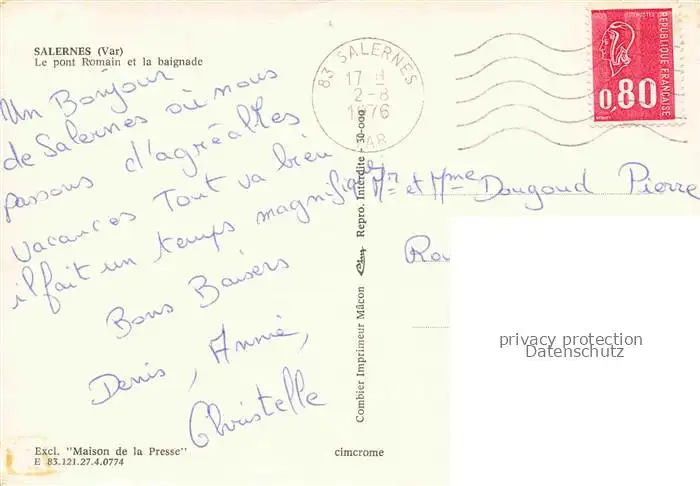 SALERNES (Var)
Le pont Romain et la baignade
Un Bonjour
de Salernes où nous
passons d'agréables
vacances Tout va bien
il fait un temps magnifique
Bons Baisers
Denis, Annie,
Christelle
Excl. "Maison de la Presse"
E 83.121.27.4.0774
cimcrome
Combier Imprimeur Mâcon Cim Repro. Interdite - 30-000
83 SALERNES
17 H
2-8
1976
VAR
POSTES
REPUBLIQUE FRANÇAISE
0,80
Mr et Mme Dougoud Pierre
privacy protection
Datenschutz